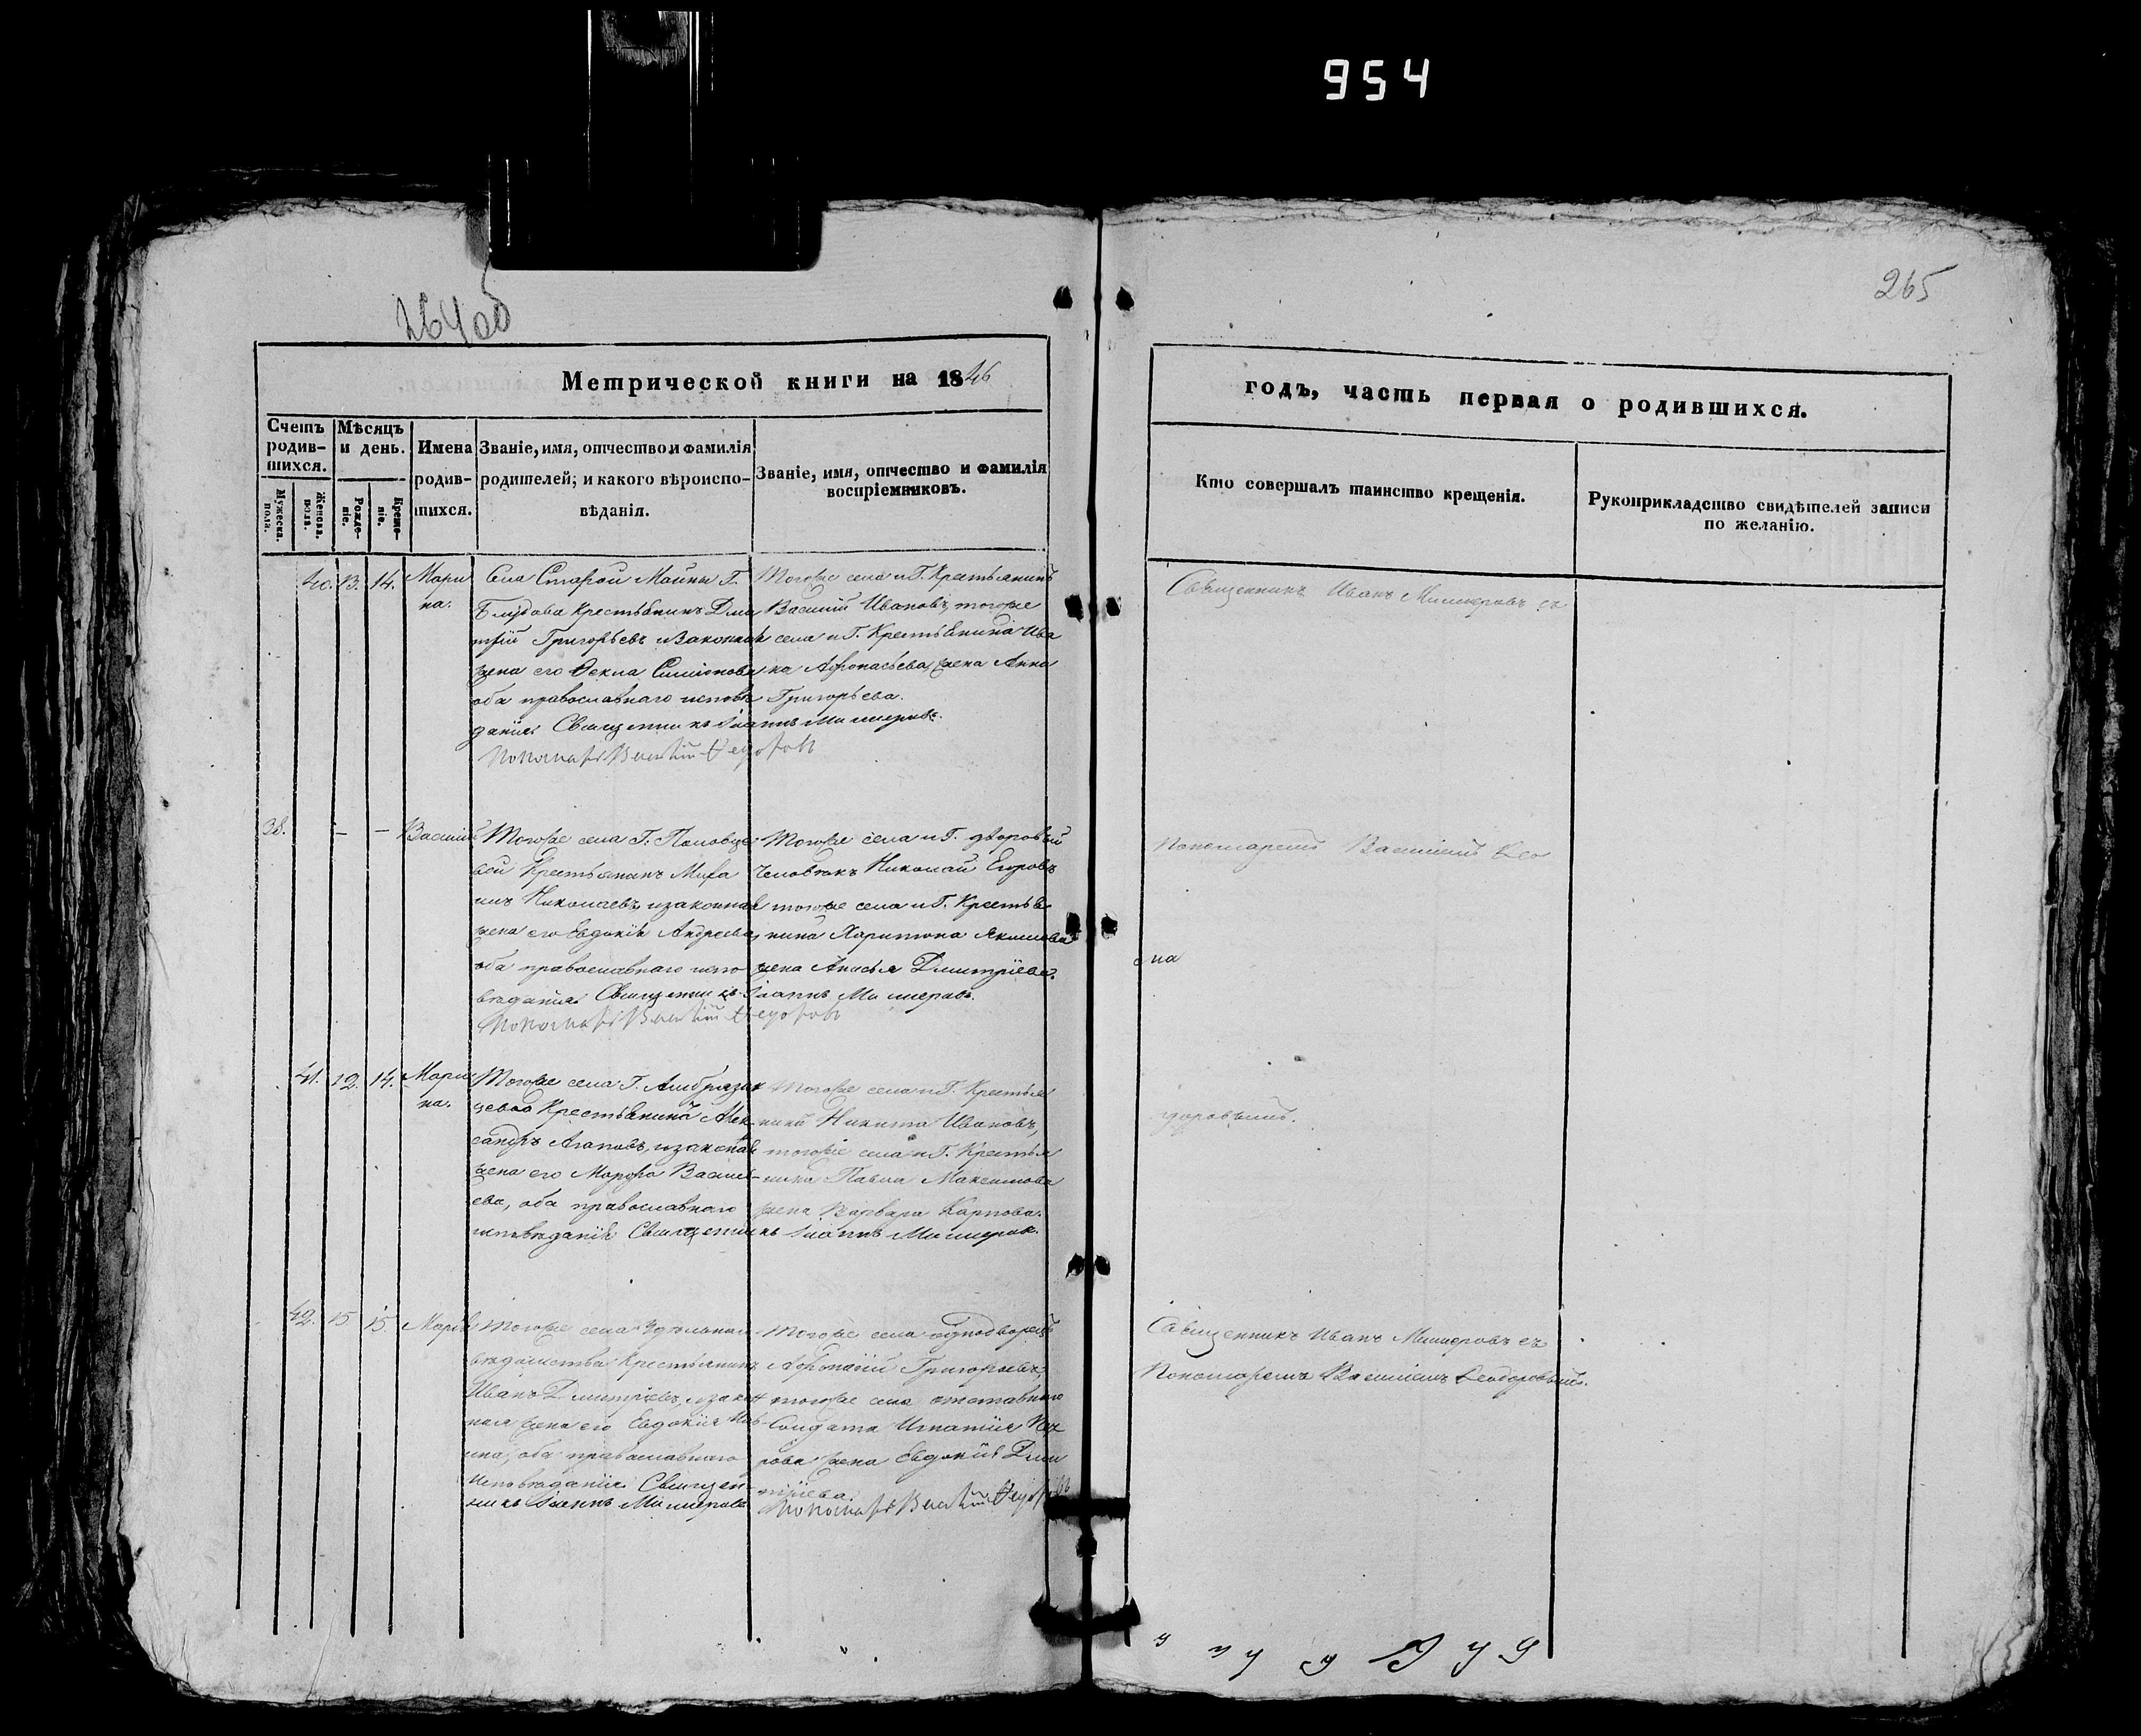 954
265
264об
Метрической книги на 1846
годъ, часть первая о родившихся.
Счетъ родив-шихся.
Мужеска. пола.
Женска. пола.
Мѣсяцъ и день.
Рожде-ніе.
Креще-ніе.
Имена родив-шихся.
Званіе, имя, отчество и фамилія
родителей; и какого вѣроиспо-
вѣданія.
Званіе, имя, отчество и фамилія
воспріемниковъ.
Кто совершалъ таинство крещенія.
Рукоприкладство свидѣтелей записи
по желанію.
40. 13. 14. Мари
на.
Села Старой Майны Г.
Блудова Крестьянинъ Дми
трій Григорьевъ и Законная
жена его Ѳекла Симіонова
оба православнаго исповѣ
данія. Священникъ Іоаннъ Миллеровъ.
Пономарь Василій Ѳедоровъ
Тогоже села и Г. Крестьянинъ
Василій Ивановъ, тогоже
села и Г. Крестьянина Ива
на Афонасьева жена Анна
Григорьева.
Священникъ Иванъ Миллеровъ съ
38. — — Василій
Тогоже села Г.
Крестьянинъ Миха
илъ Николаевъ, и законная
жена его Евдокія Андреева,
оба православнаго испо
вѣданія. Священникъ Іоаннъ Миллеровъ.
Пономарь Василій Ѳедоровъ
Тогоже села и Г. дворовый
человѣкъ Николай Егоровъ
тогоже села и Г. Крестья
нина Харитона Якимова
жена Анисья Дмитріева.
Пономаремъ Василіемъ Ѳео
41. 12. 14. Мари
на.
Тогоже села Г.
Крестьянинъ Алек
сандръ Агаповъ, и законная
жена его Марфа Василь
ева, оба православнаго
исповѣданія. Священникъ Іоаннъ Миллеровъ.
Тогоже села и Г. Крестья
нинъ Никита Ивановъ,
тогоже села и Г. Крестья
нина Павла Максимова
жена Варвара Карпова.
доровымъ.
42. 15 15. Марія
Тогоже села Удѣльнаго
вѣдомства Крестьянинъ
Иванъ Дмитріевъ, и закон
ная жена его Евдокія
оба православнаго
исповѣданія. Священ
никъ Іоаннъ Миллеровъ
Тогоже села однодворецъ
Афонасій Григорьевъ,
тогоже села отставнаго
Солдата Игнатія Пет
рова жена Евдокія Дми
тріева.
Пономарь Василій Ѳедоровъ
Священникъ Иванъ Миллеровъ съ
Пономаремъ Василіемъ Ѳеодоровымъ.